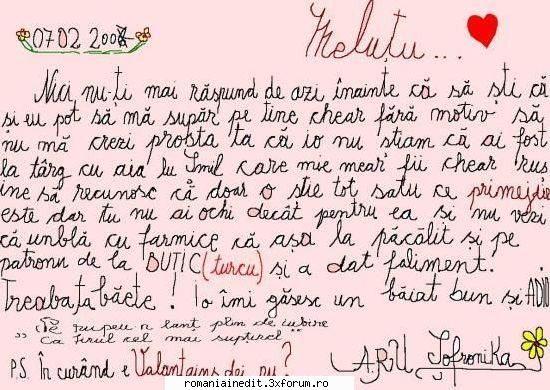 07 02 2007
Meluțu...
Nici nu-ți mai răspund de azi înainte că să știi că
și eu pot să mă supăr pe tine chear fără motiv să
nu mă crezi proasta ta că io nu știam că ai fost
la târg cu aia lu Smil care mie mear fii chear rus
ine să recunosc că doar o știe tot satu ce primejdie
este dar tu nu ai ochi decât pentru ea și nu vezi
că umblă cu farmice că așa la păcălit și pe
patronu de la BUTIC (turcu) și a dat faliment.
Treabata băete! Io îmi găsesc un băiat bun și ADIO
rupeu n lant plin de iubire
Ca firul cel mai supțirel"
P.S. În curând e Valantains dei nu?
ARU SofroniKa
romaniainedit.3xforum.ro